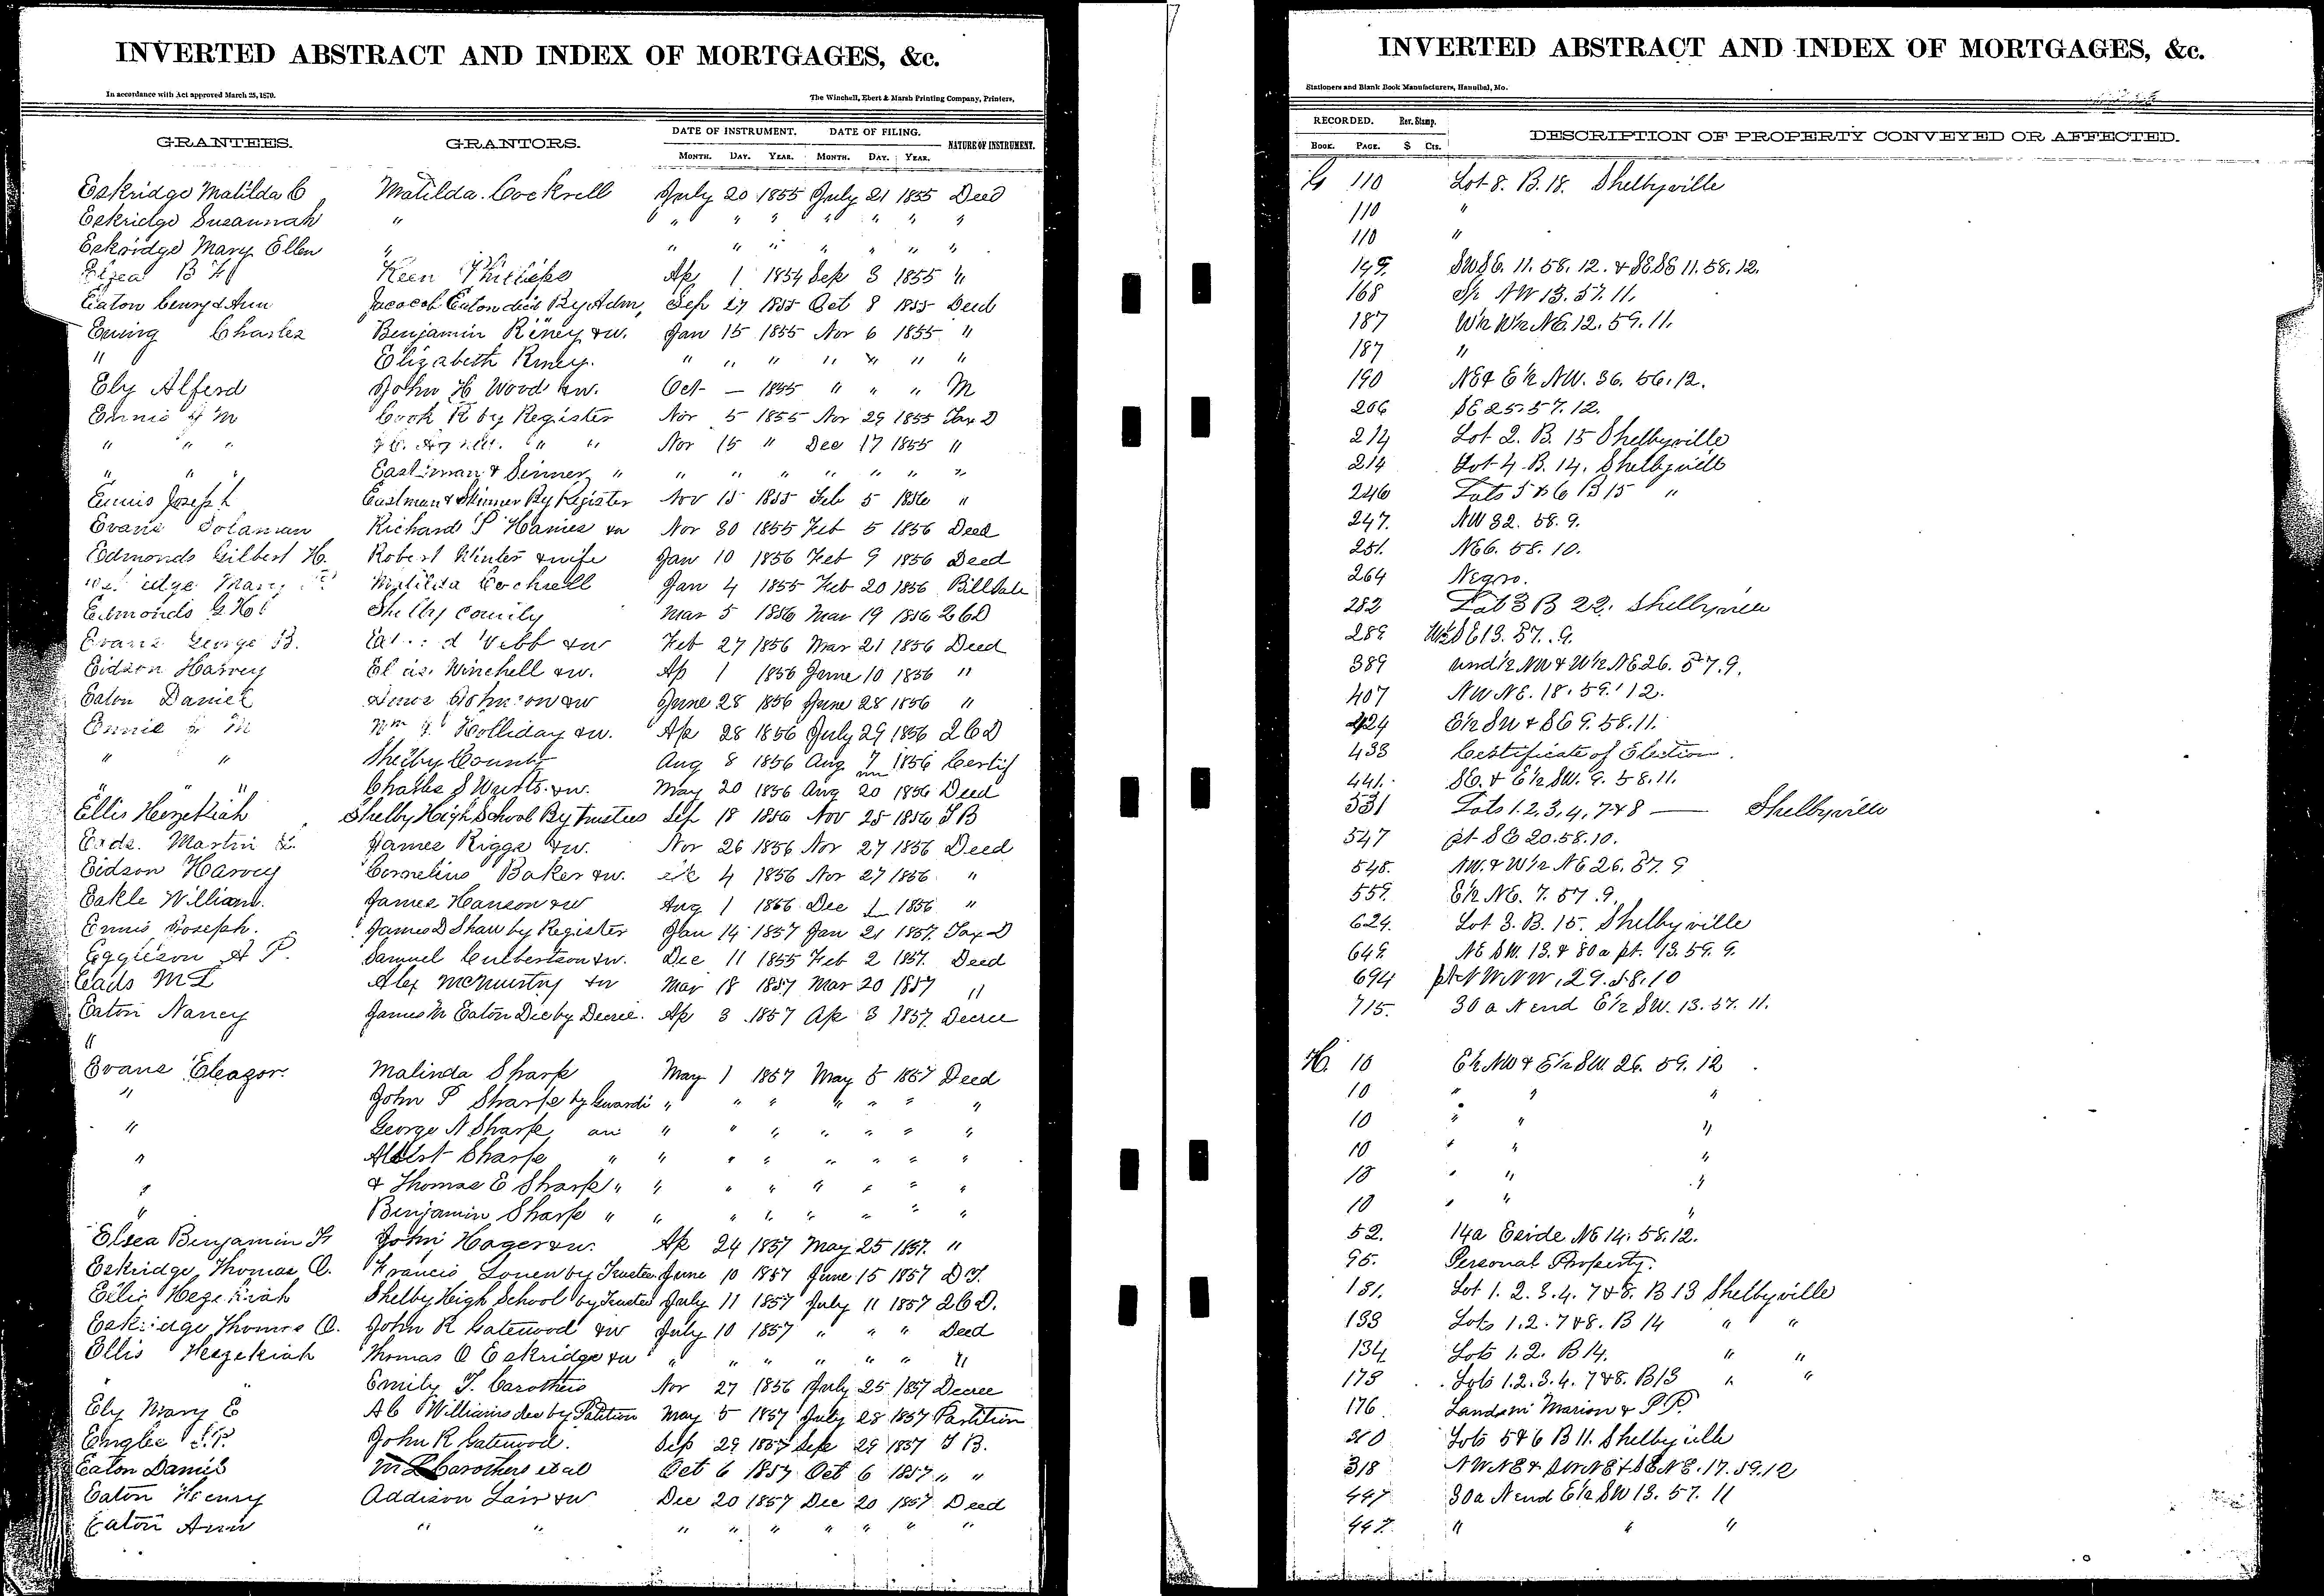 INVERTED ABSTRACT AND INDEX OF MORTGAGES, &c.
In accordance with Act approved March 25, 1870. The Winchell, Ebert & Marsh Printing Company, Printers,
GRANTEES. GRANTORS. DATE OF INSTRUMENT. DATE OF FILING. NATURE OF INSTRUMENT.
MONTH. DAY. YEAR. MONTH. DAY. YEAR.
Eskridge Matilda C Matilda Cockrell July 20 1855 July 21 1855 Deed
Eskridge Susannah " " " " " " " "
Eskridge Mary Ellen " " " " " " " "
Elzea B F Keen Ap 1 1854 Sep 3 1855 "
Eaton Henry & Ann Jacob Eaton decd By Adm, Sep 27 1855 Oct 8 1855 Deed
Ewing Charles Benjamin Riney & w. Jan 15 1855 Nov 6 1855 "
" Elizabeth Riney. " " " " " " "
Ely Alferd John H Wood & w. Oct — 1855 " " " M
Ennis J M Cook R by Register Nov 5 1855 Nov 29 1855 Tax D
" " " " " Nov 15 " Dec 17 1855 "
" " " Eastman & Sinner " " " " " " " "
Ennis Joseph Eastman & Skinner By Register Nov 15 1855 Feb 5 1856 "
Evans Solaman Richard P Hanies & w Nov 30 1855 Feb 5 1856 Deed
Edmonds Gilbert H. Robert Winter & wife Jan 10 1856 Feb 9 1856 Deed
Mary Matilda Cockrell Jan 4 1855 Feb 20 1856 Bill Sale
Edmonds G H Shelby County Mar 5 1856 Mar 19 1856 2 C D
Evans George B. Webb & w Feb 27 1856 Mar 21 1856 Deed
Eidson Harvey Winchell & w. Ap 1 1856 June 10 1856 "
Eaton Daniel Johnson & w June 28 1856 June 28 1856 "
Ennis J M Wm Holliday & w. Ap 28 1856 July 29 1856 2 C D
" " Shelby County Aug 8 1856 Aug 7 1856 Certif
" " Charles S Watts & w. May 20 1856 Aug 20 1856 Deed
Ellis Hezekiah Shelby High School By Trustees Sep 18 1856 Nov 25 1856 T B
Eads. Martin L. James Riggs & w. Nov 26 1856 Nov 27 1856 Deed
Eidson Harvey Cornelius Baker & w. 4 1856 Nov 27 1856 "
Eakle William. James Hanson & w Aug 1 1856 Dec 1 1856 "
Ennis Joseph. James D Shaw by Register Jan 14 1857 Jan 21 1857. Tax D
Eggleson A P. Samuel Culbertson & w. Dec 11 1855 Feb 2 1857. Deed
Eads M L Alex McMurtry & w Mar 18 1857 Mar 20 1857 "
Eaton Nancy James M Eaton Dec by Decree. Ap 3 1857 Ap 3 1857. Decree
"
Evans Eleazor. Malinda Sharp May 1 1857 May 5 1857 Deed
" John P Sharp by Guardi " " " " " " "
" George N Sharp an " " " " " " "
" Albert Sharp " " " " " " " "
" & Thomas E Sharp " " " " " " " "
" Benjamin Sharp " " " " " " " "
Elsea Benjamin F John Hager & w. Ap 24 1857 May 25 1857. "
Eskridge Thomas O. Francis Louen by Trustee June 10 1857 June 15 1857 D T.
Ellis Hezekiah Shelby High School by Trustees July 11 1857 July 11 1857 2 C D.
Eskridge Thomas O. John R Gatewood & w July 10 1857 " " " Deed
Ellis Hezekiah Thomas O Eskridge & w " " " " " " "
" " Emily T. Carothers Nov 27 1856 July 25 1857 Decree
Ely Mary E A C Williams dec by Patition May 5 1857 July 28 1857 Partition
Englee S. P. John R Gatewood. Sep 29 1857 Sep 29 1857 T B.
Eaton Daniel M L Carothers et al Oct 6 1857 Oct 6 1857 " "
Eaton Henry Addison Lair & w Dec 20 1857 Dec 20 1857 Deed
Eaton Ann " " " " " " " " "
INVERTED ABSTRACT AND INDEX OF MORTGAGES, &c.
Stationers and Blank Book Manufacturers, Hannibal, Mo.
RECORDED. Rev. Stamp. DESCRIPTION OF PROPERTY CONVEYED OR AFFECTED.
BOOK. PAGE. $ Cts.
G 110 Lot 8. B. 18. Shelbyville
110 "
110 "
149. SWSE. 11. 58. 12. & SESE 11. 58. 12.
168 NW 13. 57. 11.
187 W½ W½ NE. 12. 59. 11.
187 "
190 NE & E½ NW. 36. 56. 12.
206 SE 25. 57. 12.
214 Lot 2. B. 15 Shelbyville
214 Lot 4. B. 14. Shelbyville
246 Lots 5 & 6 B 15 "
247. NW 32. 58. 9.
251. NE 6. 58. 10.
264 Negro.
282 Lot 3 B 22. Shelbyville
289 W½ SE 13. 57. 9.
389 und½ NW & W½ NE 26. 57. 9.
407 NW NE. 18. 59. 12.
424 E½ SW & SE 9. 58. 11.
433 Certificate of Election.
441. SE. & E½ SW. 9. 58. 11.
531 Lots 1. 2, 3, 4, 7 & 8 — Shelbyville
547 pt SE 20. 58. 10.
548. NW. & W½ NE 26. 57. 9
559. E½ NE. 7. 57. 9.
624. Lot 3. B. 15. Shelbyville
649. NE SW. 13. & 80 a pt. 13. 59. 9.
694 pt NW NW, 29. 58. 10
715. 30 a N end E½ SW. 13. 57. 11.
H. 10 E½ NW & E½ SW 26. 59. 12
10 " " "
10 " " "
10 " " "
10 " " "
10 " " "
52. 14a Eside NE 14. 58. 12.
95. Personal Property.
131. Lot 1. 2. 3. 4. 7 & 8. B 13 Shelbyville
133 Lots 1. 2. 7 & 8. B 14 " "
134 Lots 1. 2. B 14. " "
173 Lots 1. 2. 3. 4. 7 & 8. B 13 " "
176 Lands in Marion & P P.
310 Lots 5 & 6 B 11. Shelbyville
318 NWNE & SWNE & SENE. 17. 59. 12
447 30a N end E½ SW 13. 57. 11
447. " " "